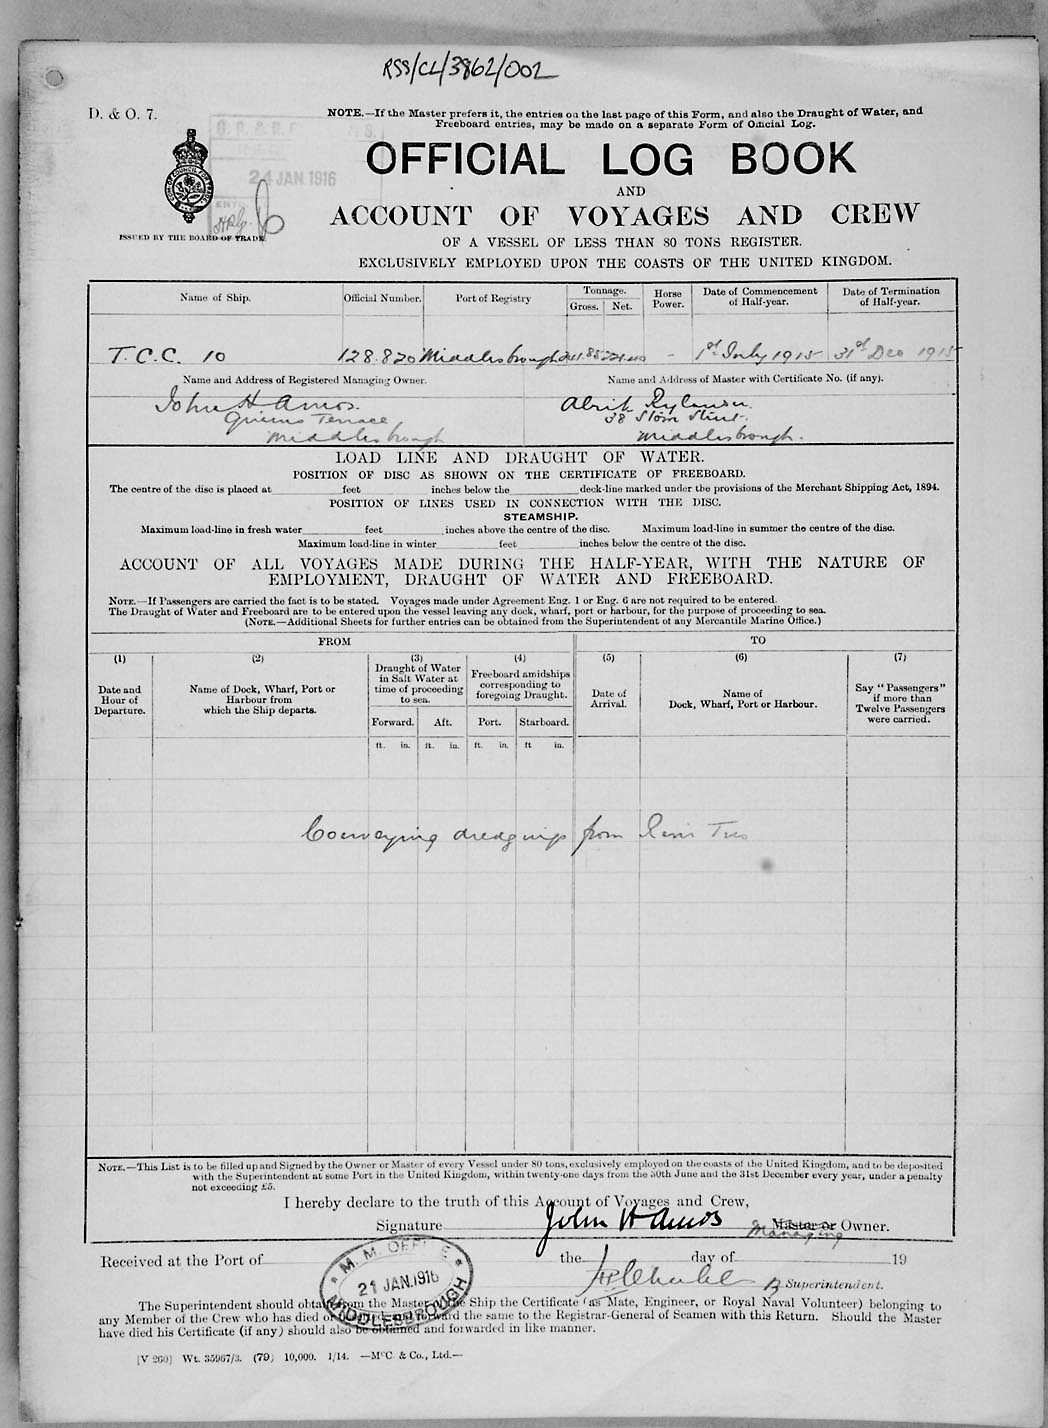 RSS/CL/3862/002
D. & O. 7.
NOTE.—If the Master prefers it, the entries on the last page of this Form, and also the Draught of Water, and
Freeboard entries, may be made on a separate Form of Official Log.
24 JAN. 1916
OFFICIAL LOG BOOK
AND
ACCOUNT OF VOYAGES AND CREW
ISSUED BY THE BOARD OF TRADE.
OF A VESSEL OF LESS THAN 80 TONS REGISTER.
EXCLUSIVELY EMPLOYED UPON THE COASTS OF THE UNITED KINGDOM.
Name of Ship. Official Number. Port of Registry Tonnage. Gross. Net. Horse Power. Date of Commencement of Half-year. Date of Termination of Half-year.
T.C.C. 10 128.820 Middlesbrough - 1st July 1915 31st Dec 1915
Name and Address of Registered Managing Owner. Name and Address of Master with Certificate No. (if any).
John H Amos.
Queens Terrace 38 Street.
Middlesbrough Middlesbrough.
LOAD LINE AND DRAUGHT OF WATER.
POSITION OF DISC AS SHOWN ON THE CERTIFICATE OF FREEBOARD.
The centre of the disc is placed at feet inches below the deck-line marked under the provisions of the Merchant Shipping Act, 1894.
POSITION OF LINES USED IN CONNECTION WITH THE DISC.
STEAMSHIP.
Maximum load-line in fresh water feet inches above the centre of the disc. Maximum load-line in summer the centre of the disc.
Maximum load-line in winter feet inches below the centre of the disc.
ACCOUNT OF ALL VOYAGES MADE DURING THE HALF-YEAR, WITH THE NATURE OF
EMPLOYMENT, DRAUGHT OF WATER AND FREEBOARD.
NOTE.—If Passengers are carried the fact is to be stated. Voyages made under Agreement Eng. 1 or Eng. 6 are not required to be entered.
The Draught of Water and Freeboard are to be entered upon the vessel leaving any dock, wharf, port or harbour, for the purpose of proceeding to sea.
(NOTE.—Additional Sheets for further entries can be obtained from the Superintendent of any Mercantile Marine Office.)
FROM TO
(1) (2) (3) (4) (5) (6) (7)
Date and Hour of Departure. Name of Dock, Wharf, Port or Harbour from which the Ship departs. Draught of Water in Salt Water at time of proceeding to sea. Freeboard amidships corresponding to foregoing Draught. Date of Arrival. Name of Dock, Wharf, Port or Harbour. Say "Passengers" if more than Twelve Passengers were carried.
Forward. Aft. Port. Starboard.
ft. in. ft. in. ft. in. ft in.
Conveying dredgings from River Tees
NOTE.—This List is to be filled up and Signed by the Owner or Master of every Vessel under 80 tons, exclusively employed on the coasts of the United Kingdom, and to be deposited
with the Superintendent at some Port in the United Kingdom, within twenty-one days from the 30th June and the 31st December every year, under a penalty
not exceeding £5.
I hereby declare to the truth of this Account of Voyages and Crew,
Signature John H Amos Master or Owner.
Managing
Received at the Port of the day of 19
M. M. OFFICE
21 JAN. 1916
MIDDLESBROUGH
Superintendent.
The Superintendent should obtain from the Master of the Ship the Certificate (as Mate, Engineer, or Royal Naval Volunteer) belonging to
any Member of the Crew who has died or forward the same to the Registrar-General of Seamen with this Return. Should the Master
have died his Certificate (if any) should also be obtained and forwarded in like manner.
[V 260] Wt. 35967/3. (79) 10,000. 1/14. —McC. & Co., Ltd.—